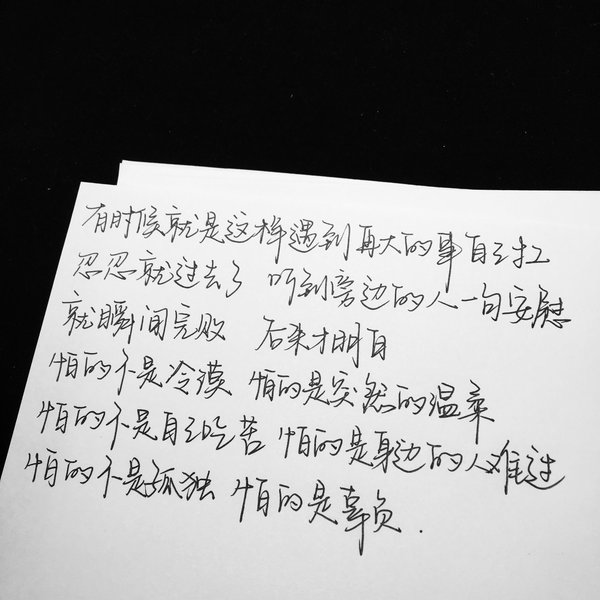 有时候就是这样遇到再大的事自己扛
忍忍就过去了 听到旁边的人一句安慰
就瞬间完败 后来才明白
怕的不是冷漠 怕的是突然的温柔
怕的不是自己吃苦 怕的是身边的人难过
怕的不是孤独 怕的是辜负.